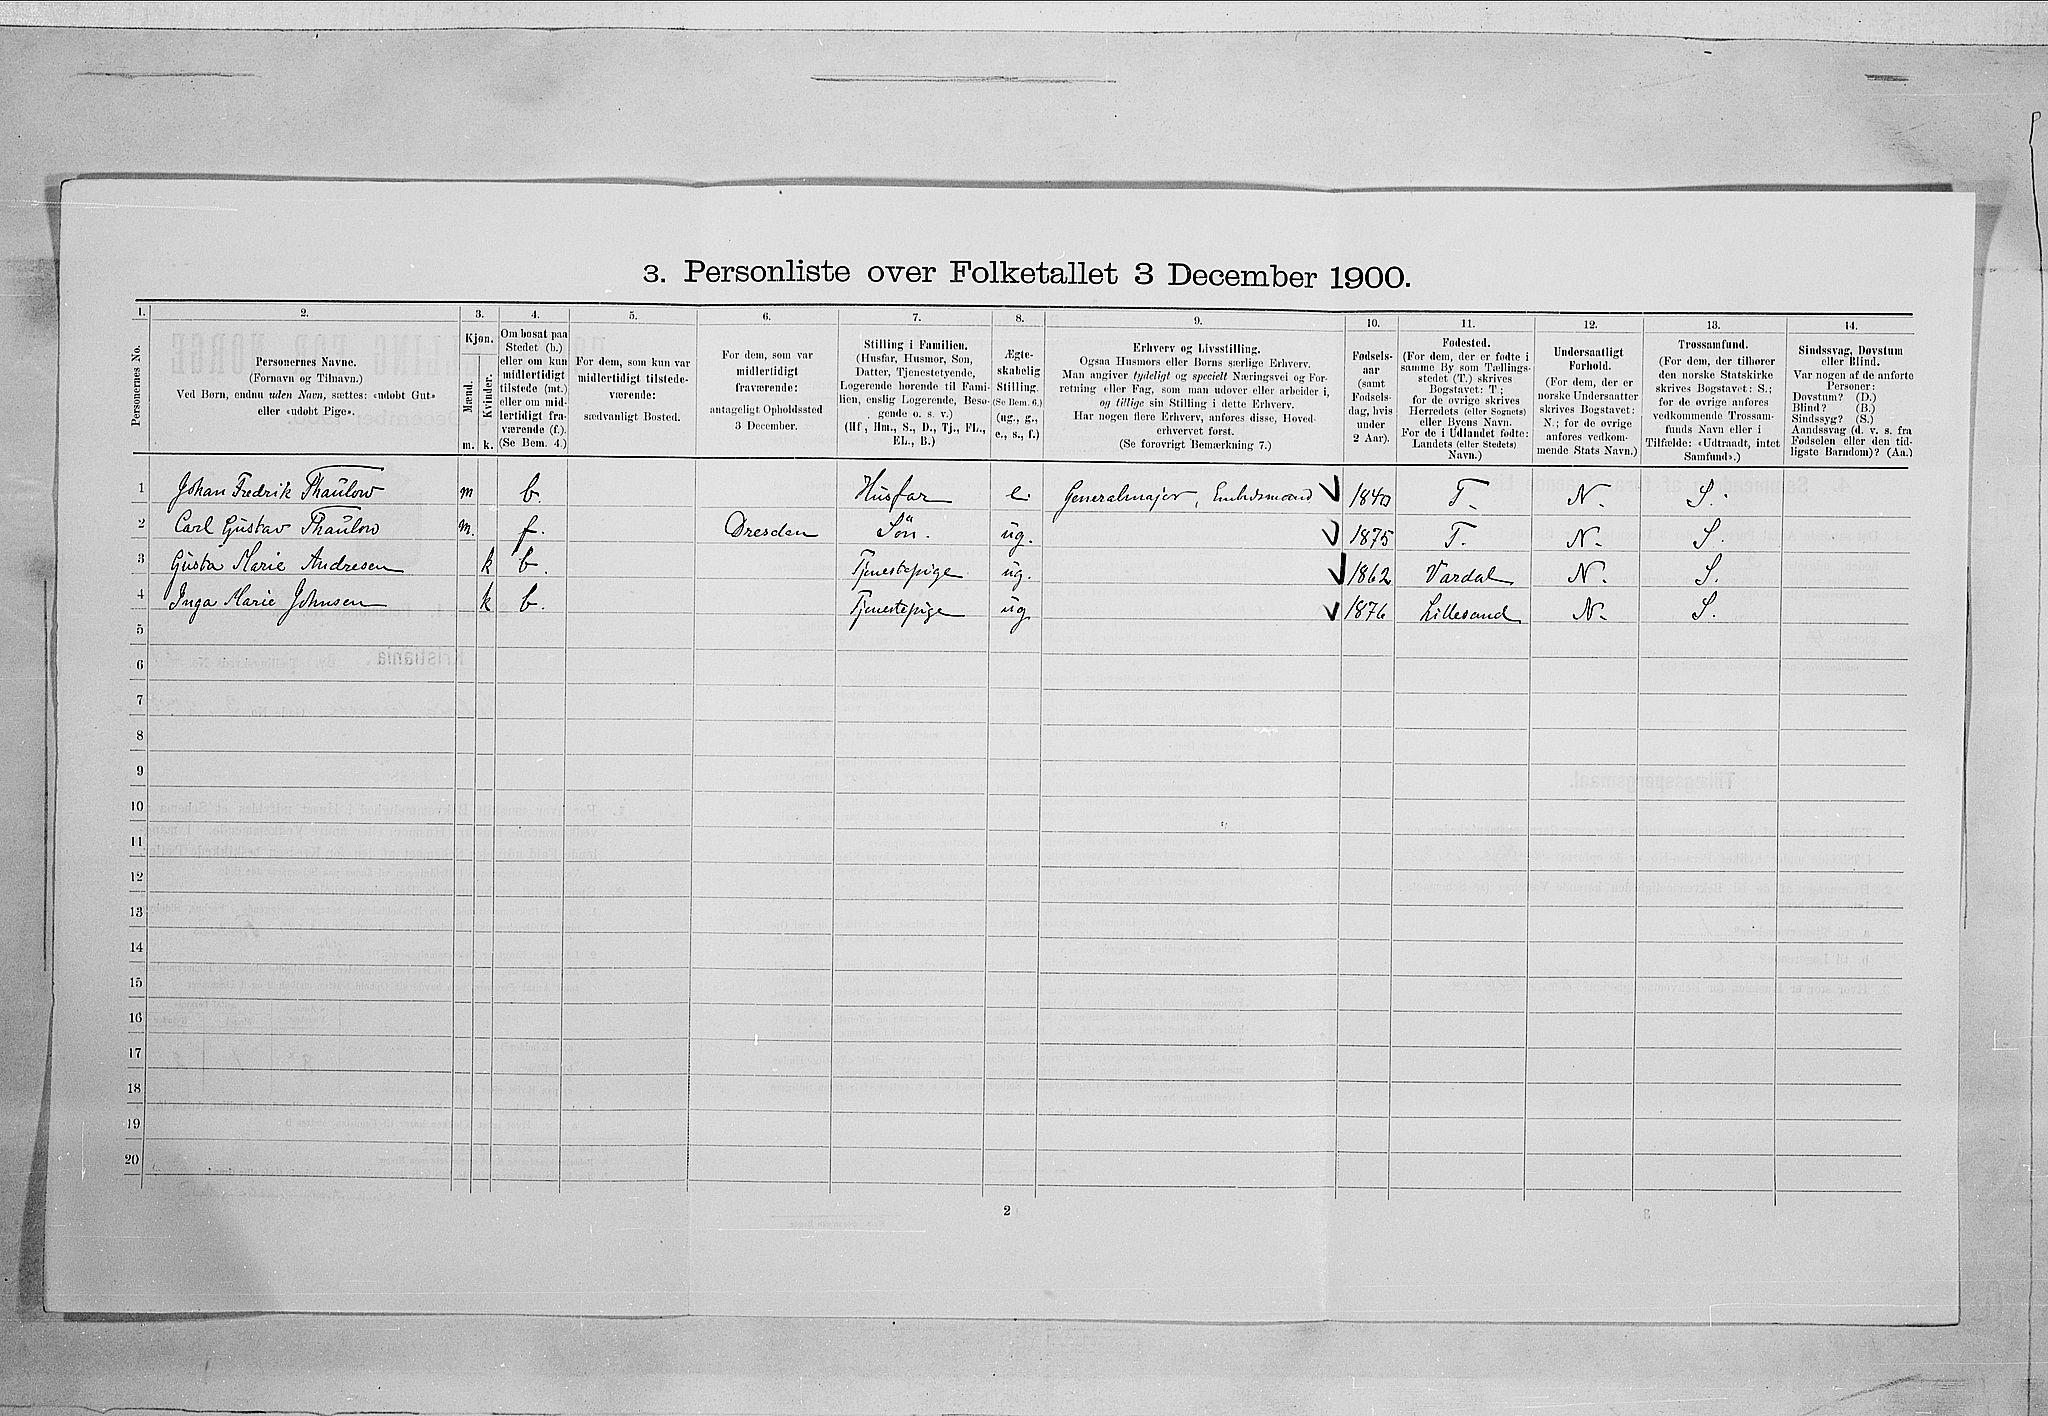 3. Personliste over Folketallet 3 December 1900.
1. 2. 3. 4. 5. 6. 7. 8. 9. 10. 11. 12. 13. 14.
Personernes No.
Personernes Navne.
(Fornavn og Tilnavn.)
Ved Børn, endnu uden Navn, sættes: «udøbt Gut»
eller «udøbt Pige».
Kjøn.
Mænd.
Kvinder.
m. k.
Om bosat paa
Stedet (b.)
eller om kun
midlertidigt
tilstede (mt.)
eller om mid-
lertidigt fra-
værende (f.).
(Se Bem. 4.)
For dem, som kun var
midlertidigt tilstede-
værende:
sædvanligt Bosted.
For dem, som var
midlertidigt
fraværende:
antageligt Opholdssted
3 December.
Stilling i Familien.
(Husfar, Husmor, Søn,
Datter, Tjenestetyende,
Logerende hørende til Fami-
lien, enslig Logerende, Besø-
gende o. s. v.)
(Hf, Hm., S., D., Tj., FL.,
EL., B.)
Ægte-
skabelig
Stilling.
(Se Bem. 6.)
(ug., g.,
e., s., f.)
Erhverv og Livsstilling.
Ogsaa Husmors eller Børns særlige Erhverv.
Man angiver tydeligt og specielt Næringsvei og For-
retning eller Fag, som man udøver eller arbeider i,
og tillige sin Stilling i dette Erhverv.
Har nogen flere Erhverv, anføres disse, Hoved-
erhvervet først.
(Se forøvrigt Bemærkning 7.)
Fødsels-
aar
(samt
Fødsels-
dag, hvis
under
2 Aar).
Fødested.
(For dem, der er fødte i
samme By som Tællings-
stedet (T.) skrives
Bogstavet: T.;
for de øvrige skrives
Herredets (eller Sognets)
eller Byens Navn.
For de i Udlandet fødte:
Landets (eller Stedets)
Navn.)
Undersaatligt
Forhold.
(For dem, der er
norske Undersaatter
skrives Bogstavet:
N.; for de øvrige
anføres vedkom-
mende Stats Navn.)
Trossamfund.
(For dem, der tilhører
den norske Statskirke
skrives Bogstavet: S.;
for de øvrige anføres
vedkommende Trossam-
funds Navn eller i
Tilfælde: «Udtraadt, intet
Samfund».)
Sindssvag, Døvstum
eller Blind.
Var nogen af de anførte
Personer:
Døvstum? (D.)
Blind? (B.)
Sindssyg? (S.)
Aandssvag (d. v. s. fra
Fødselen eller den tid-
ligste Barndom)? (Aa.)
1 Johan Fredrik Thaulow m b. Husfar e. Generalmajor, Embedsmand 1840 T. N. S.
2 Carl Gustav Thaulow m. f. Dresden Sön. ug. 1875 T. N. S.
3 Gusta Marie Andresen k b. Tjenestepige ug. 1862 Vardal N. S.
4 Inga Marie Johnsen k b. Tjenestepige ug 1876 Lillesand N. S.
5
6
7
8
9
10
11
12
13
14
15
16
17
18
19
20
2